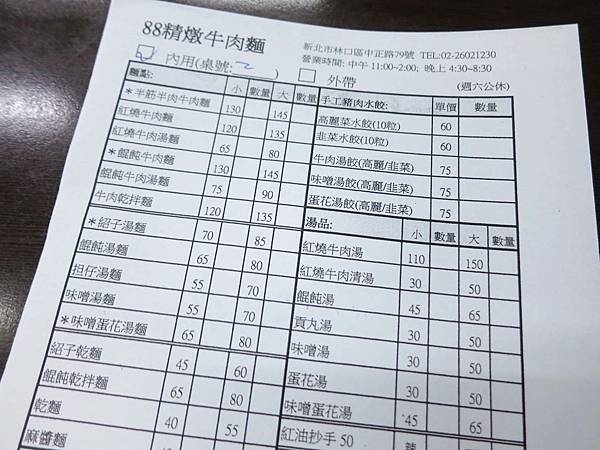 88精燉牛肉麵
新北市林口區中正路79號 TEL:02-26021230
內用(桌號: 2 )
外帶
營業時間: 中午 11:00~2:00; 晚上 4:30~8:30
(週六公休)
麵點: 小 數量 大 數量
*半筋半肉牛肉麵 130 145
紅燒牛肉麵 120 135
紅燒牛肉湯麵 65 80
*餛飩牛肉麵 130 145
餛飩牛肉湯麵 75 90
牛肉乾拌麵 120 135
*紹子湯麵 70 85
餛飩湯麵 65 80
担仔湯麵 55 70
味噌湯麵 55 70
*味噌蛋花湯麵 65 80
紹子乾麵 45 60
餛飩乾拌麵 65 80
乾麵 40 55
麻醬麵
手工豬肉水餃: 單價 數量
高麗菜水餃(10粒) 60
韭菜水餃(10粒) 60
牛肉湯餃(高麗/韭菜) 75
味噌湯餃(高麗/韭菜) 75
蛋花湯餃(高麗/韭菜) 75
湯品: 小 數量 大 數量
紅燒牛肉湯 110 150
紅燒牛肉清湯 30 50
餛飩湯 45 65
貢丸湯 30 50
味噌湯 30 50
蛋花湯 30 50
味噌蛋花湯 45 65
紅油抄手 50 辣